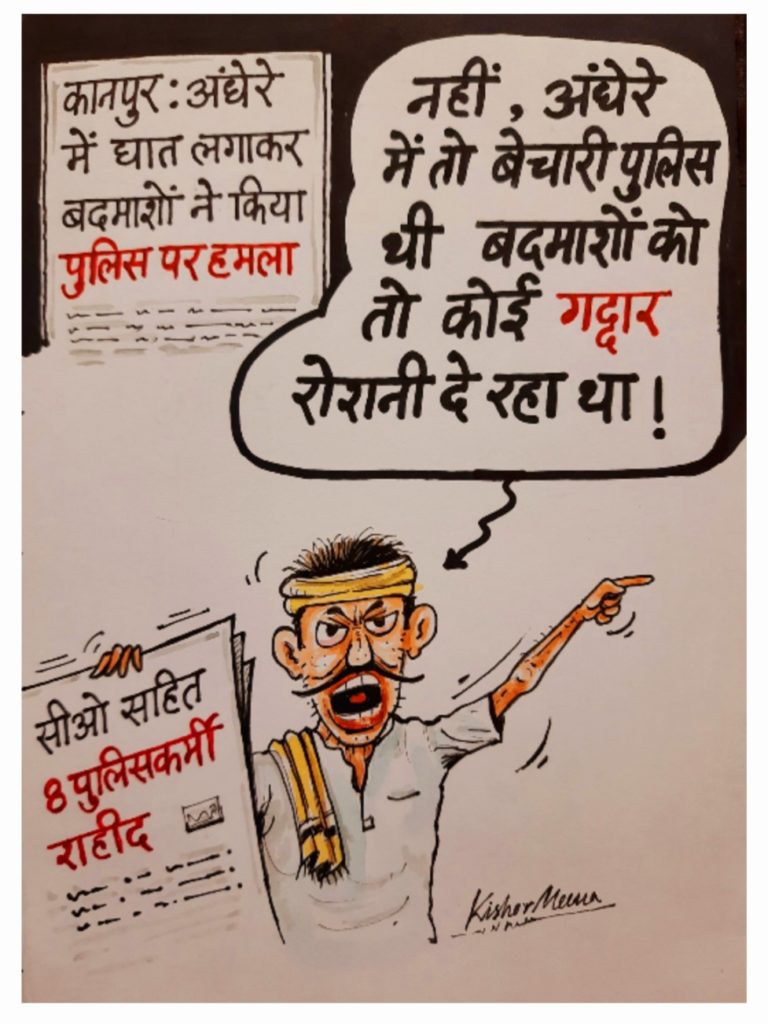 कानपुर : अंधेरे
में घात लगाकर
बदमाशों ने किया
पुलिस पर हमला
नहीं , अंधेरे
में तो बेचारी पुलिस
थी बदमाशों को
तो कोई गद्दार
रोशनी दे रहा था !
सीओ सहित
8 पुलिसकर्मी
शहीद
Kishor Meena